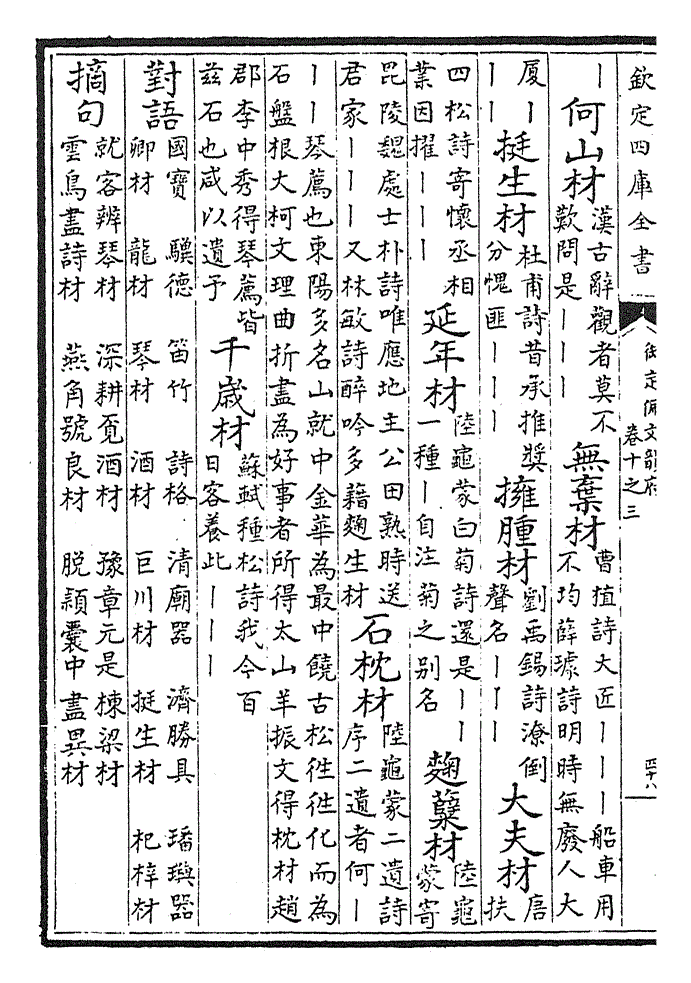 欽定四庫全書
御定佩文韻府
卷十之三
四十八
｜何山材
漢古辭觀者莫不
歎問是｜｜｜
無棄材
曹植詩大匠｜｜｜船車用
不均薛璩詩明時無廢人大
厦｜
｜｜
挺生材
杜甫詩昔承推奬
分愧匪｜｜｜
擁腫材
劉禹錫詩潦倒
聲名｜｜｜
大夫材
唐
扶
四松詩寄懷丞相
業因擢｜｜｜
延年材
陸龜蒙白菊詩還是｜｜
一種｜自注菊之别名
麴蘖材
陸龜
蒙寄
毘陵魏處士朴詩唯應地主公田熟時送
君家｜｜｜又林敏詩醉吟多藉麴生材
石枕材
陸龜蒙二遺詩
序二遺者何｜
｜｜琴薦也東陽多名山就中金華為最中饒古松徃徃化而為
石盤根大柯文理曲折盡為好事者所得太山羊振文得枕材趙
郡李中秀得琴薦皆
兹石也咸以遺予
千歲材
蘇軾種松詩我今百
日客養此｜｜｜
對語
國寶 驥德 笛竹 詩格 清廟器 濟勝具 璠璵器
卿材 龍材 琴材 酒材 巨川材 挺生材 杞梓材
摘句
就客辨琴材 深耕覓酒材 豫章元是棟梁材
雲鳥盡詩材 燕角號良材 脱頴囊中盡異材